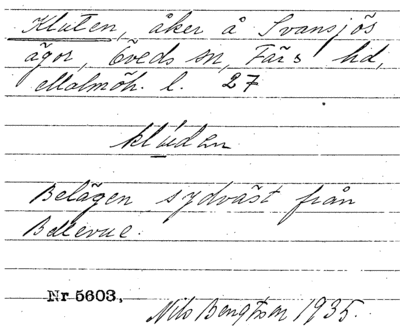 Kluten, åker å Svansjös
ägor, Öveds sn, Färs hd,
Malmöh. l. 27
klúdan
Belägen sydväst från
Bellevue.
Nr 5603.
Nils Bengtson 1935.